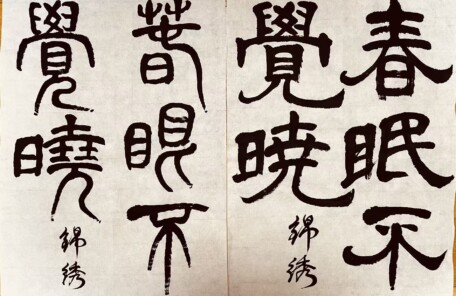 春眠不
覺暁
錦綉
春眠不
覺曉
錦綉